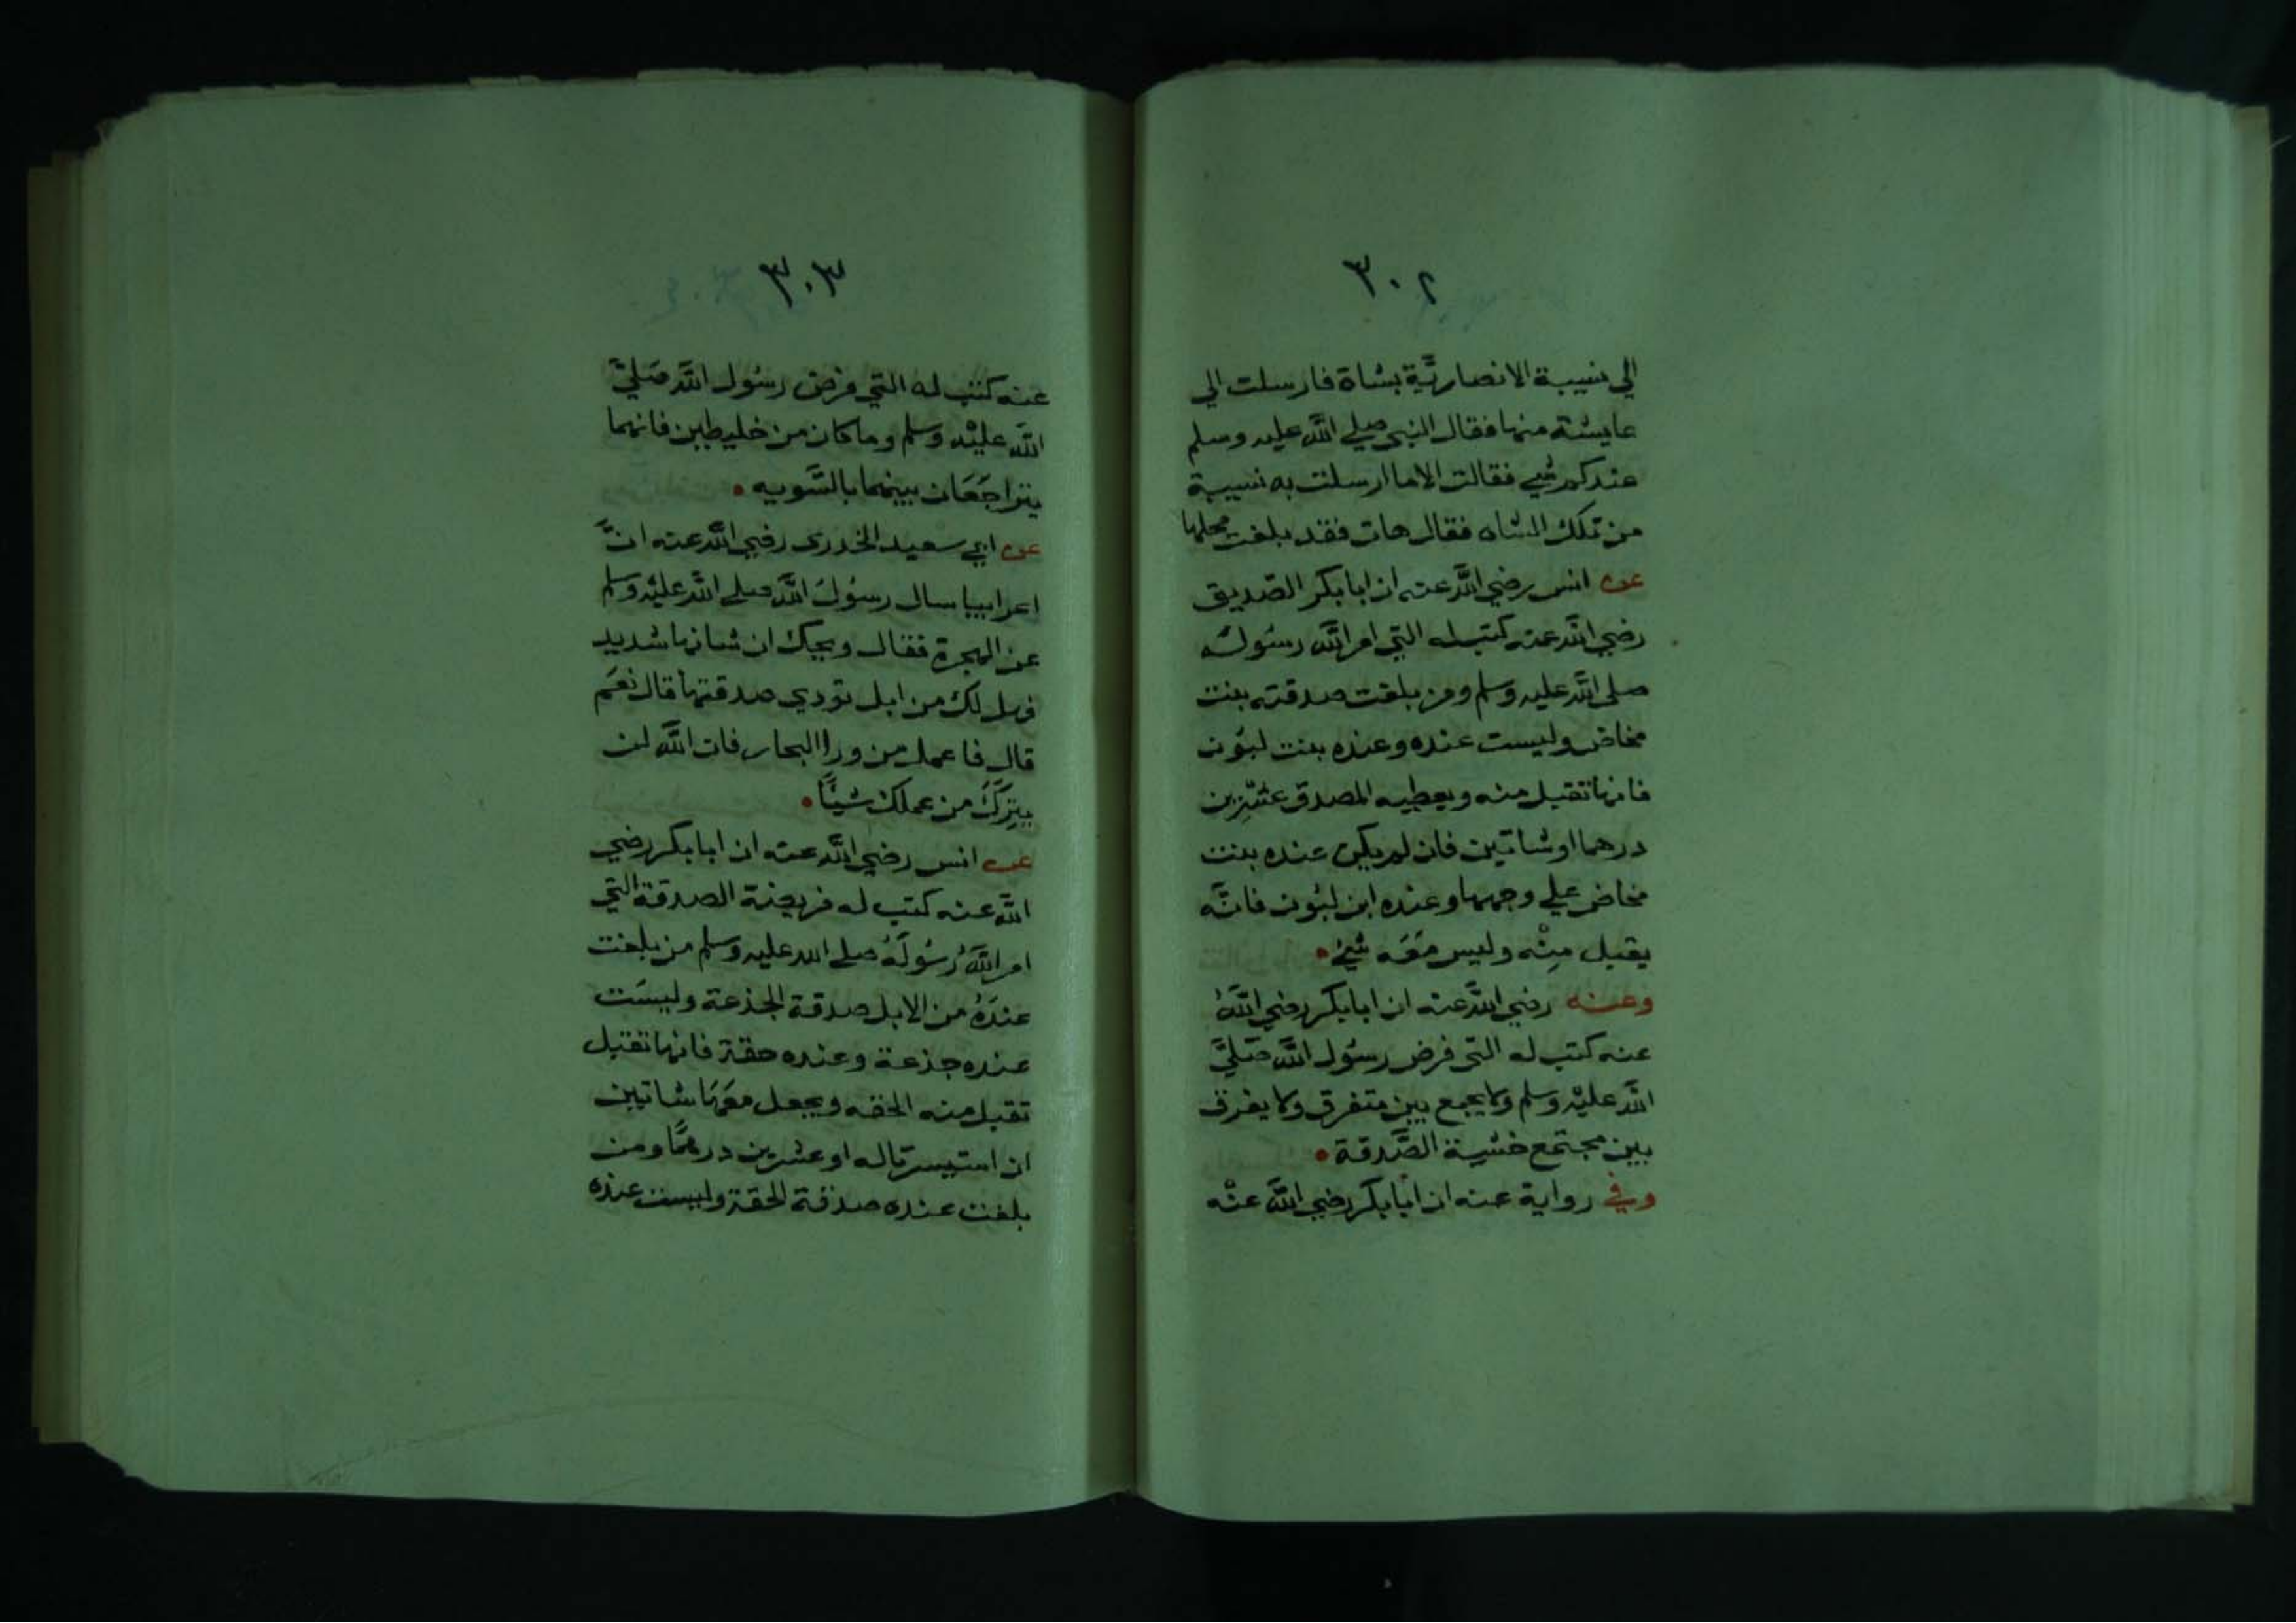 ٣٠٢
الي نسيبة الانصاريَّة بشاة فارسلت الي
عايشة منها فقال النبي صلي اللّه عليه وسلم
عندكم شيء فقالت الا ما ارسلت به نسيبة
من تلك الشاه فقال هات فقد بلغت محلها
عن انس رضي اللّه عنه ان ابا بكر الصّديق
رضي اللّه عنه كتب له التي امر اللّه رسُوله
صلي اللّه عليه وسلم ومن بلغت صدقته بنت
مخاض وليست عنده وعنده بنت لبُون
فانها تقبل منه ويعطيه المصدق عشرين
درهما او شاتين فان لم يكن عنده بنت
مخاض علي وجهها وعنده ابن لبُون فانَّه
يقبل مِنْه وليس مَعَه شيءٌ •
وعنه رضي اللّه عنه ان ابا بكر رضي اللّهُ
عنه كتب له التي فرض رسُول اللّه صَليَّ
اللّه عليْه وسلم ولا يجمع بين متفرق ولا يفرق
بين مجتمع خشية الصَّدقة •
وفي رواية عنه ان ابا بكر رضي اللّه عنْه
٣٠٣
عنه كتب له التي فرض رسُول اللّه صَليَّ
اللّه عليْه وسلم وما كان من خليطين فانهما
يتراجَعَان بينهما بالسَّويه •
عن ابي سعيد الخدري رضي اللّه عنه انَّ
اعرابيا سال رسُولَ اللّه صلي اللّه عليْه وسلم
عن الهجرة فقال ويحك ان شانها شديد
فهل لك من ابل تودي صدقتها قال نعَم
قال فاعمل من ورا البحار فان اللّه لن
يتِرَكَ من عملك شيًا •
عن انس رضي اللّه عنه ان ابا بكر رضي
اللّه عنه كتب له فريضة الصدقة التي
امر اللّهُ رسُولَهُ صلي الله عليه وسلم من بلغت
عندَهُ من الابل صدقة الجذعة وليسَت
عنده جذعة وعنده حقة فانها تقبل
تقبل منه الحقه ويجعل معَهَا شاتين
ان استيسرتا له او عشرين درهمًا ومن
بلغت عنده صدقة الحقة وليست عنده